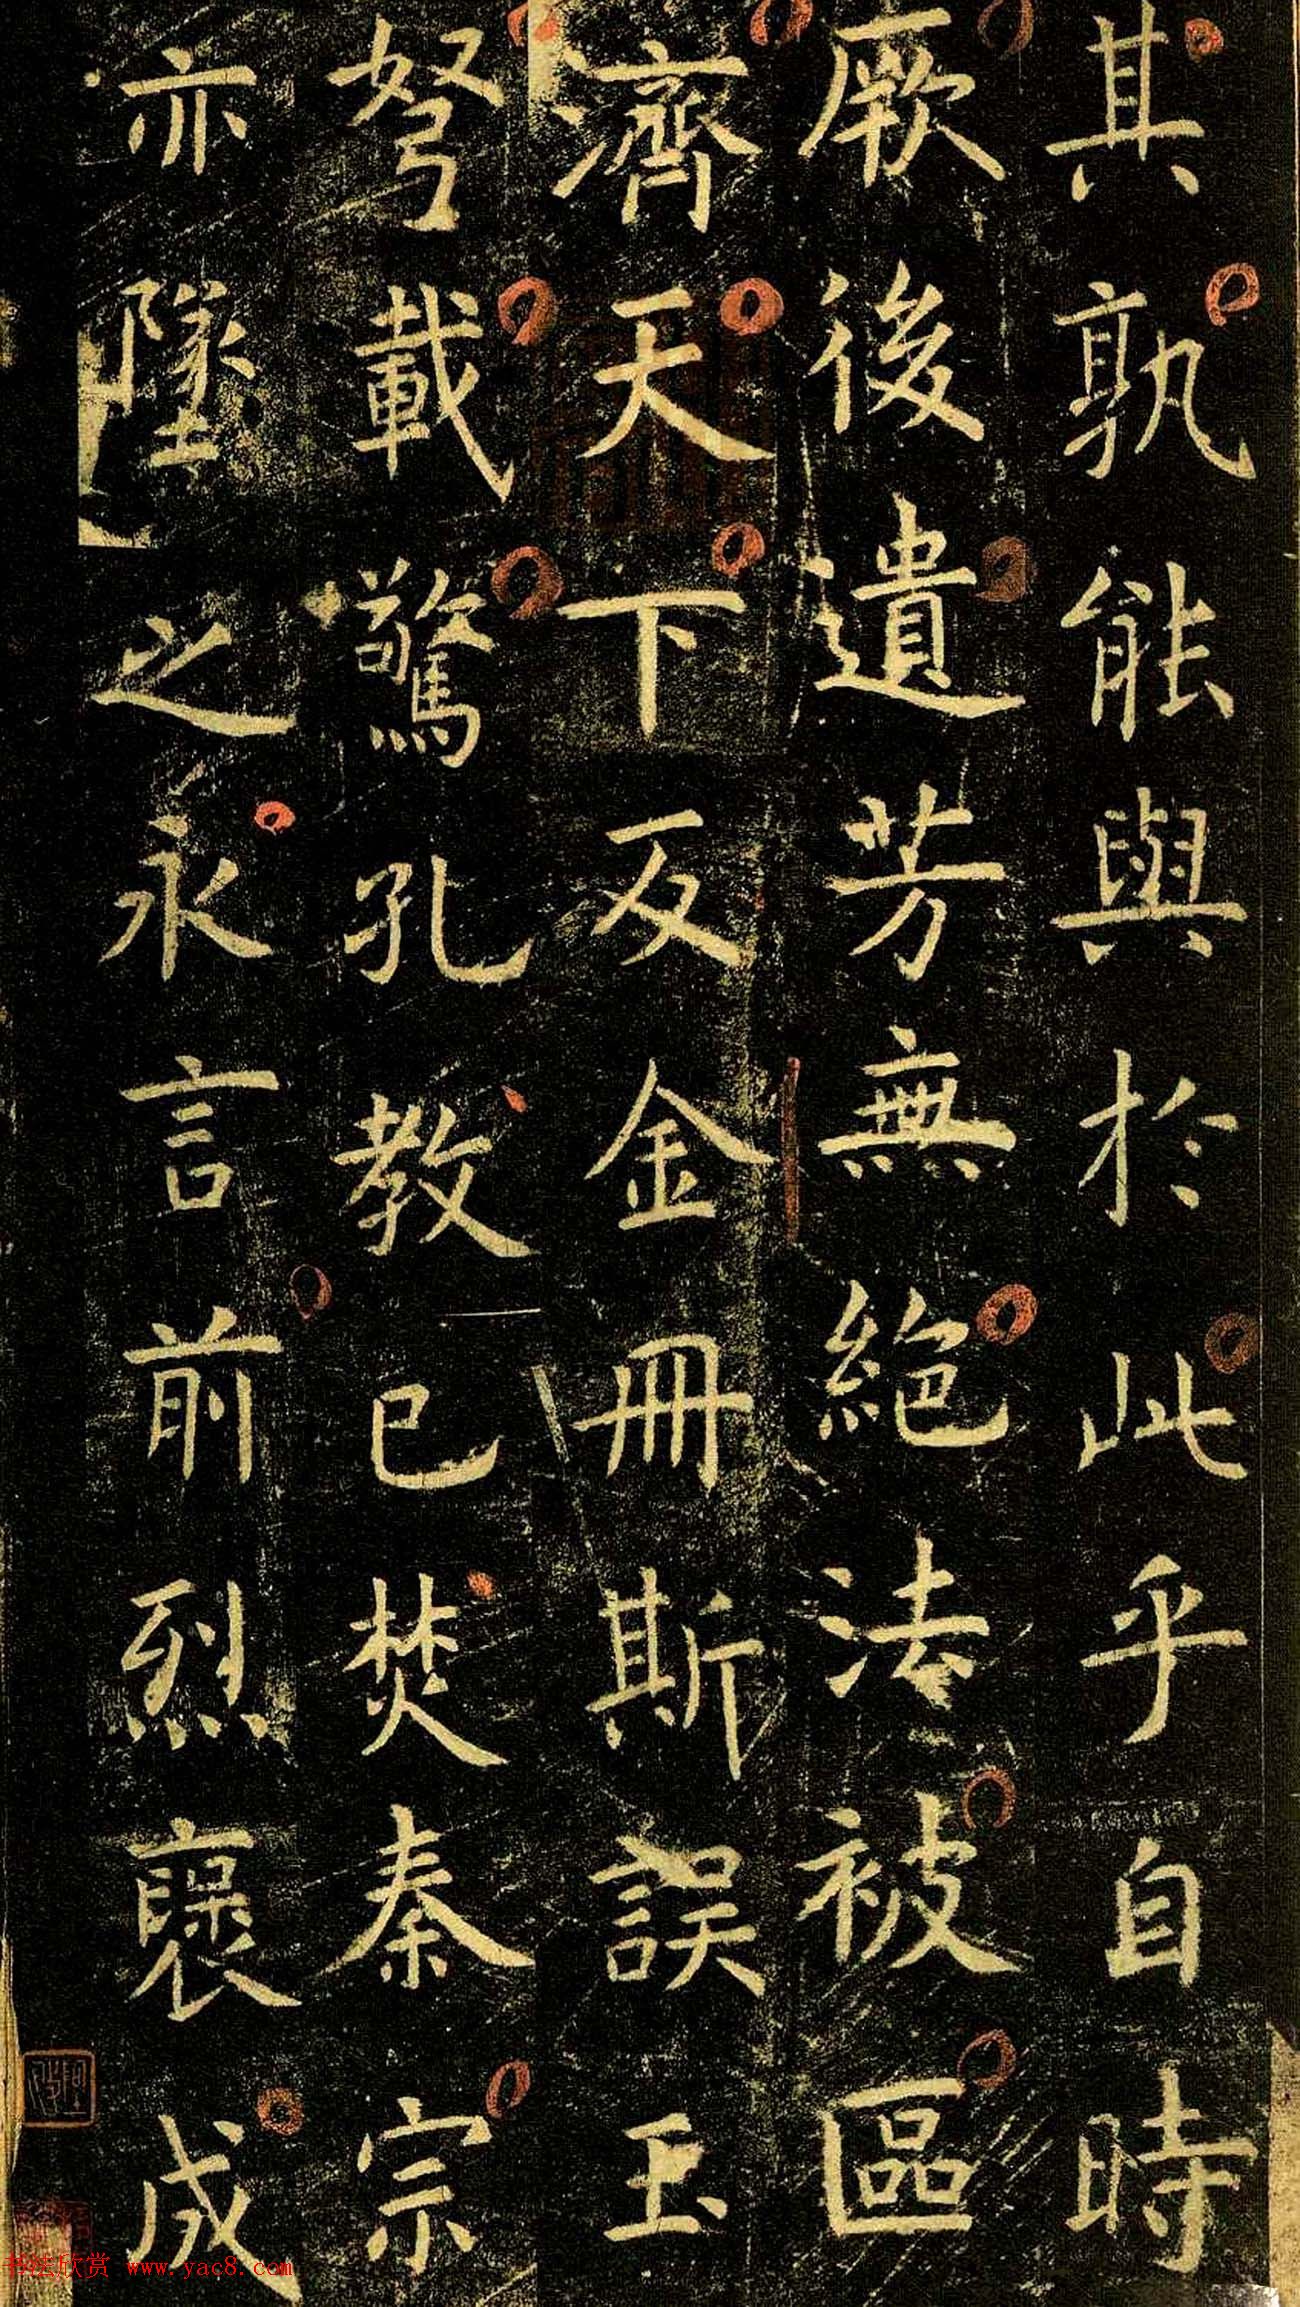 其孰能與於此乎自時
厥後遺芳無絕法被區
濟天下反金冊斯誤玉
弩載驚孔教已焚秦宗
亦墜之永言前烈褒成
书法欣赏 www.yac8.com